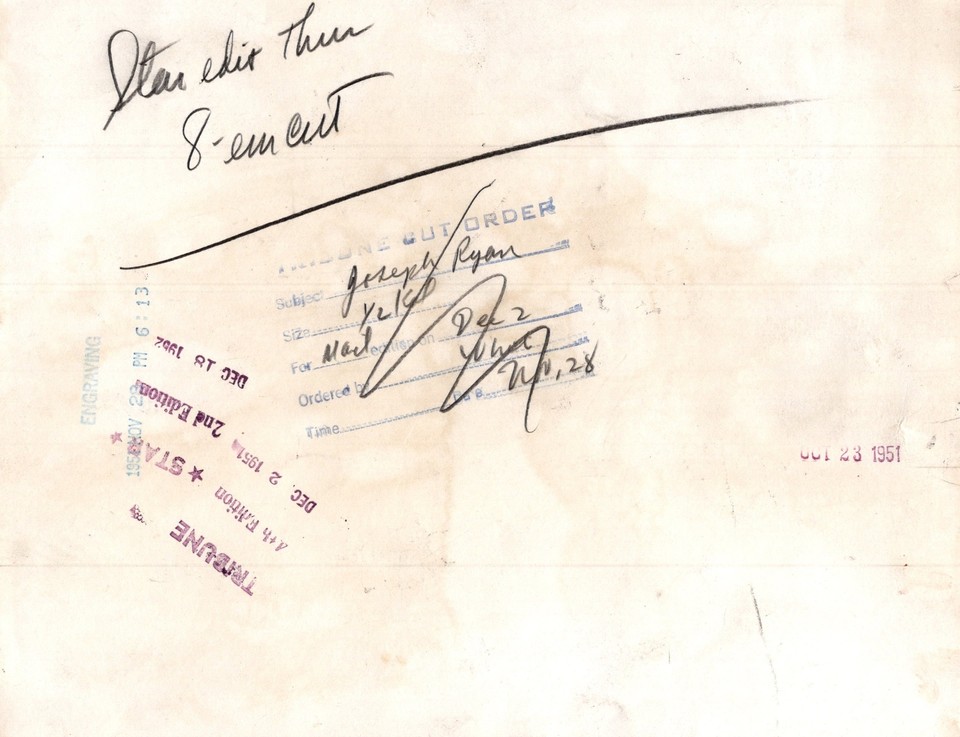 Star edit Thur
8-em cut
TRIBUNE CUT ORDER
Subject Joseph Ryan
Size 1/2
For Mail edition on Dec 2
Ordered by
Date Nov, 28
Time
ENGRAVING
PM 6:13
DEC 18 1952
2nd Edition
★ STAR ★
DEC. 2 1951
4th Edition
TRIBUNE
OCT 23 1951